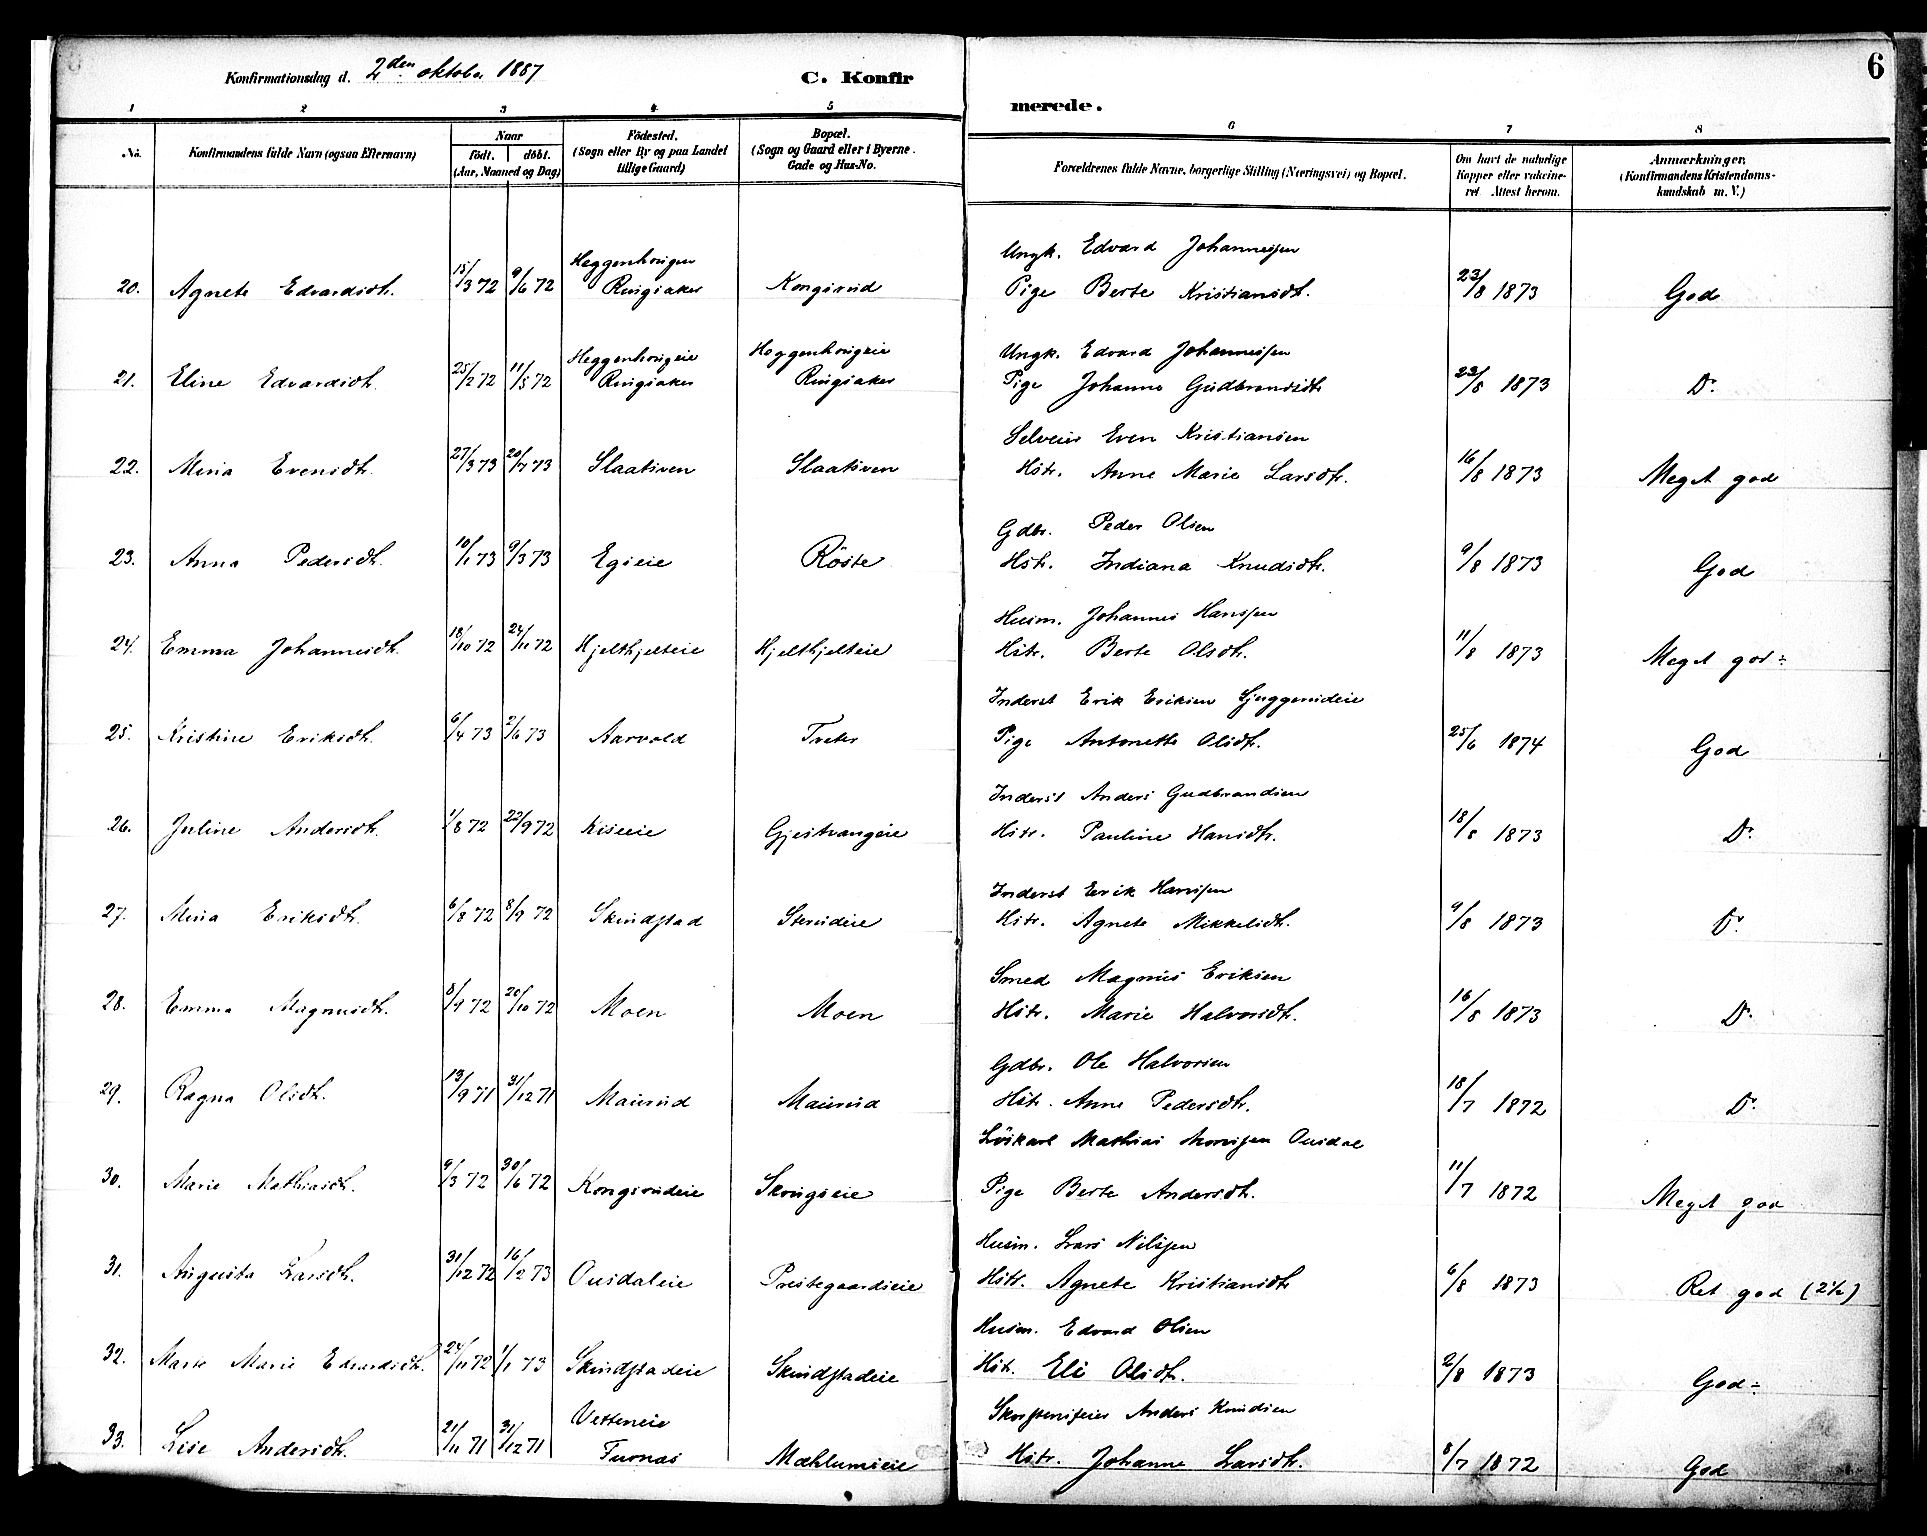 6
Konfirmationsdag d. 2den oktober 1887
C. Konfir
merede.
1 2 3 4 5 6 7 8
No. Konfirmandens fulde Navn (ogsaa Efternavn) Naar født. døbt. (Aar, Maaned og Dag) Födested. (Sogn eller By og paa Landet tillige Gaard) Bopæl. (Sogn og Gaard eller i Byerne Gade og Hus-No. Forældrenes fulde Navne, borgerlige Stilling (Næringsvei) og Bopæl. Om havt de naturlige Kopper eller vakcineret. Attest herom. Anmærkninger. (Konfirmandens Kristendomskundskab m. V.)
Heggenhougen Ungk. Edvard Johannessen
20. Agnete Edvardsdtr. 15/3 72 9/6 72 Ringsaker Kongsrud Pige Berte Kristiansdtr. 23/8 1873 God
Heggenhougeie Heggenhougeie Ungk. Edvard Johannessen
21. Eline Edvardsdtr. 25/2 72 11/5 72 Ringsaker Ringsaker Pige Johanne Gudbrandsdtr 23/8 1873 Do
Selveier Even Kristiansen
22. Mina Evensdtr. 27/3 73 20/7 73 Slaatsven Slaatsven Hstr. Anne Marie Larsdtr. 16/8 1873 Meget god
Gdbr. Peder Olsen
23. Anna Pedersdtr. 10/1 73 9/3 73 Egseie Röste Hstr. Indiana Knudsdtr. 9/8 1873 God
Husm. Johannes Hanssen
24. Emma Johannesdtr. 18/10 72 24/11 72 Hjelthjelteie Hjelthjelteie Hstr. Berte Olsdtr. 11/8 1873 Meget god ÷
Inderst Erik Eriksen Sjuggerudeie
25. Kristine Eriksdtr. 6/4 73 2/6 73 Aarvold Treter Pige Antonette Olsdtr. 25/6 1874 God
Inderst Anders Gudbrandsen
26. Juline Andersdtr. 1/8 72 22/9 72 Kiseeie Gjestvangeie Hstr. Pauline Hansdtr. 18/8 1873 Do
Inderst Erik Hanssen
27. Mina Eriksdtr. 6/8 72 8/9 72 Skindstad Stensdeie Hstr. Agnete Mikkelsdtr. 9/8 1873 Do
Smed Magnus Eriksen
28. Emma Magnusdtr. 8/9 72 20/10 72 Moen Moen Hstr. Marie Halvorsdtr. 16/8 1873 Do
Gdbr. Ole Halvorsen
29. Ragna Olsdtr. 13/9 71 31/12 71 Maurud Maurud Hstr. Anne Pedersdtr. 18/7 1872 Do
Löskarl Mathias Ousdal
30. Marie Mathiasdtr. 9/3 72 30/6 72 Kongsrudeie Skougseie Pige Berte Andersdtr. 11/7 1872 Meget god
Husm. Lars Nilssen
31. Augusta Larsdtr. 31/12 72 16/2 73 Ousdaleie Prestegaardseie Hstr. Agnete Kristiansdtr 6/8 1873 Ret god (2½)
Husm. Edvard Olsen
32. Marte Marie Edvardsdtr. 24/11 72 1/1 73 Skindstadeie Skindstadeie Hstr. Eli Olsdtr. 2/8 1873 God ÷
Vetteneie Skorstensfeier Anders Knudsen
33. Lise Andersdtr. 21/11 71 31/12 71 Furnas Mæhlumseie Hstr. Johanne Larsdtr. 8/7 1872 God